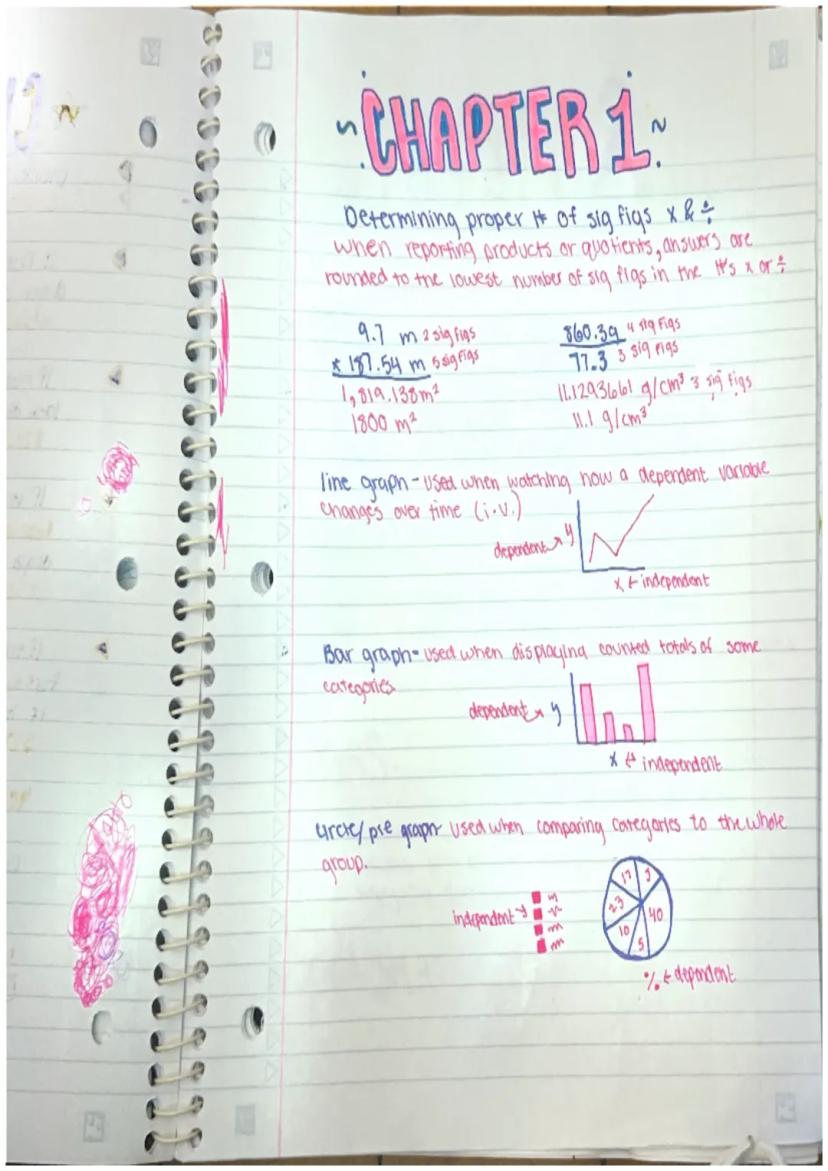 ~CHAPTER 1~
Determining proper # of sig figs x & ÷
when reporting products or quotients, answers are
rounded to the lowest number of sig figs in the #'s x or ÷
9.7 m 2 sig figs
x 187.54 m 5 sig figs
1,819.138m²
1800 m²
860.3g 4 sig figs
77.3 3 sig figs
11.1293661 g/cm³ 3 sig figs
11.1 g/cm³
line graph - used when watching how a dependent variable
changes over time (i.v.)
dependent → y
x ← independent
Bar graph - used when displaying counted totals of some
categories
dependent → y
x ← independent
circle/pie graph - used when comparing categories to the whole
group.
independent →
17
23
10
5
40
% ← dependent